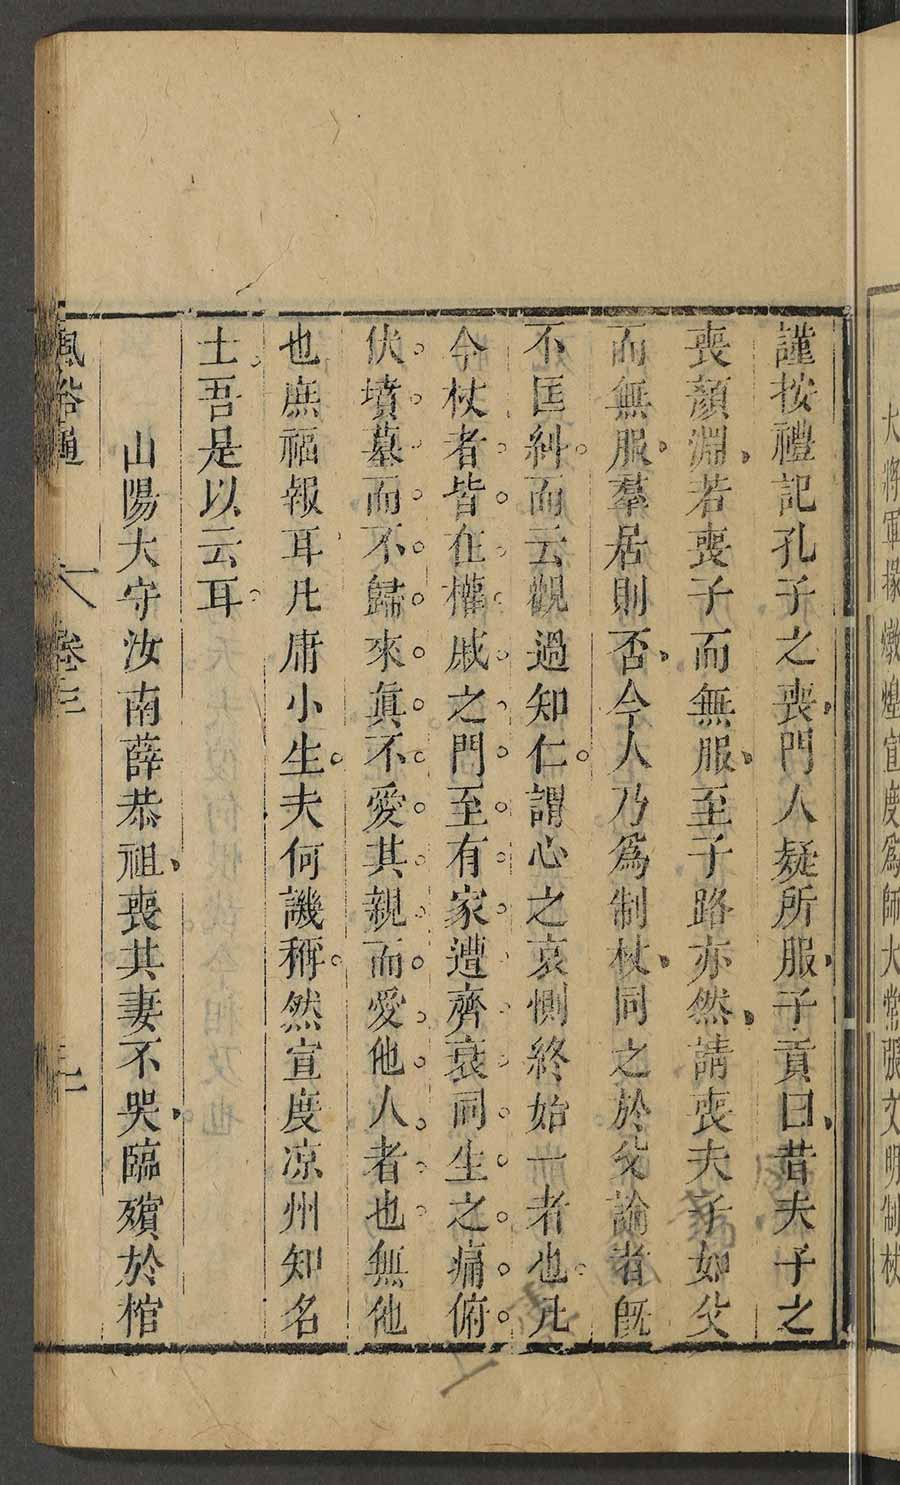 大將軍掾燉煌宣度爲師大常張文明制杖
謹按禮記孔子之喪門人疑所服子貢曰昔夫子之
喪顏淵若喪子而無服至子路亦然請喪夫子如父
而無服羣居則否今人乃爲制杖同之於父論者旣
不匡糾而云觀過知仁謂心之哀惻終始一者也凡
今杖者皆在權戚之門至有家遭齊衰同生之痛俯
伏墳墓而不歸來眞不愛其親而愛他人者也無他
也庶福報耳凡庸小生夫何譏稱然宣度凉州知名
士吾是以云耳
山陽大守汝南薛恭祖喪其妻不哭臨殯於棺
風俗通 卷三 二